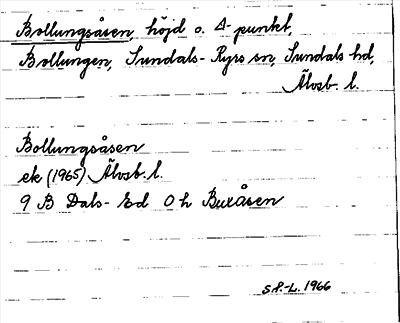 Bollungsåsen, höjd o. Δ-punkt,
Bollungen, Sundals-Ryrs sn, Sundals hd,
Älvsb. l.
Bollungsåsen
ek (1965) Älvsb. l.
9 B Dals-Ed 0 h Buxåsen
S.P.-L. 1966